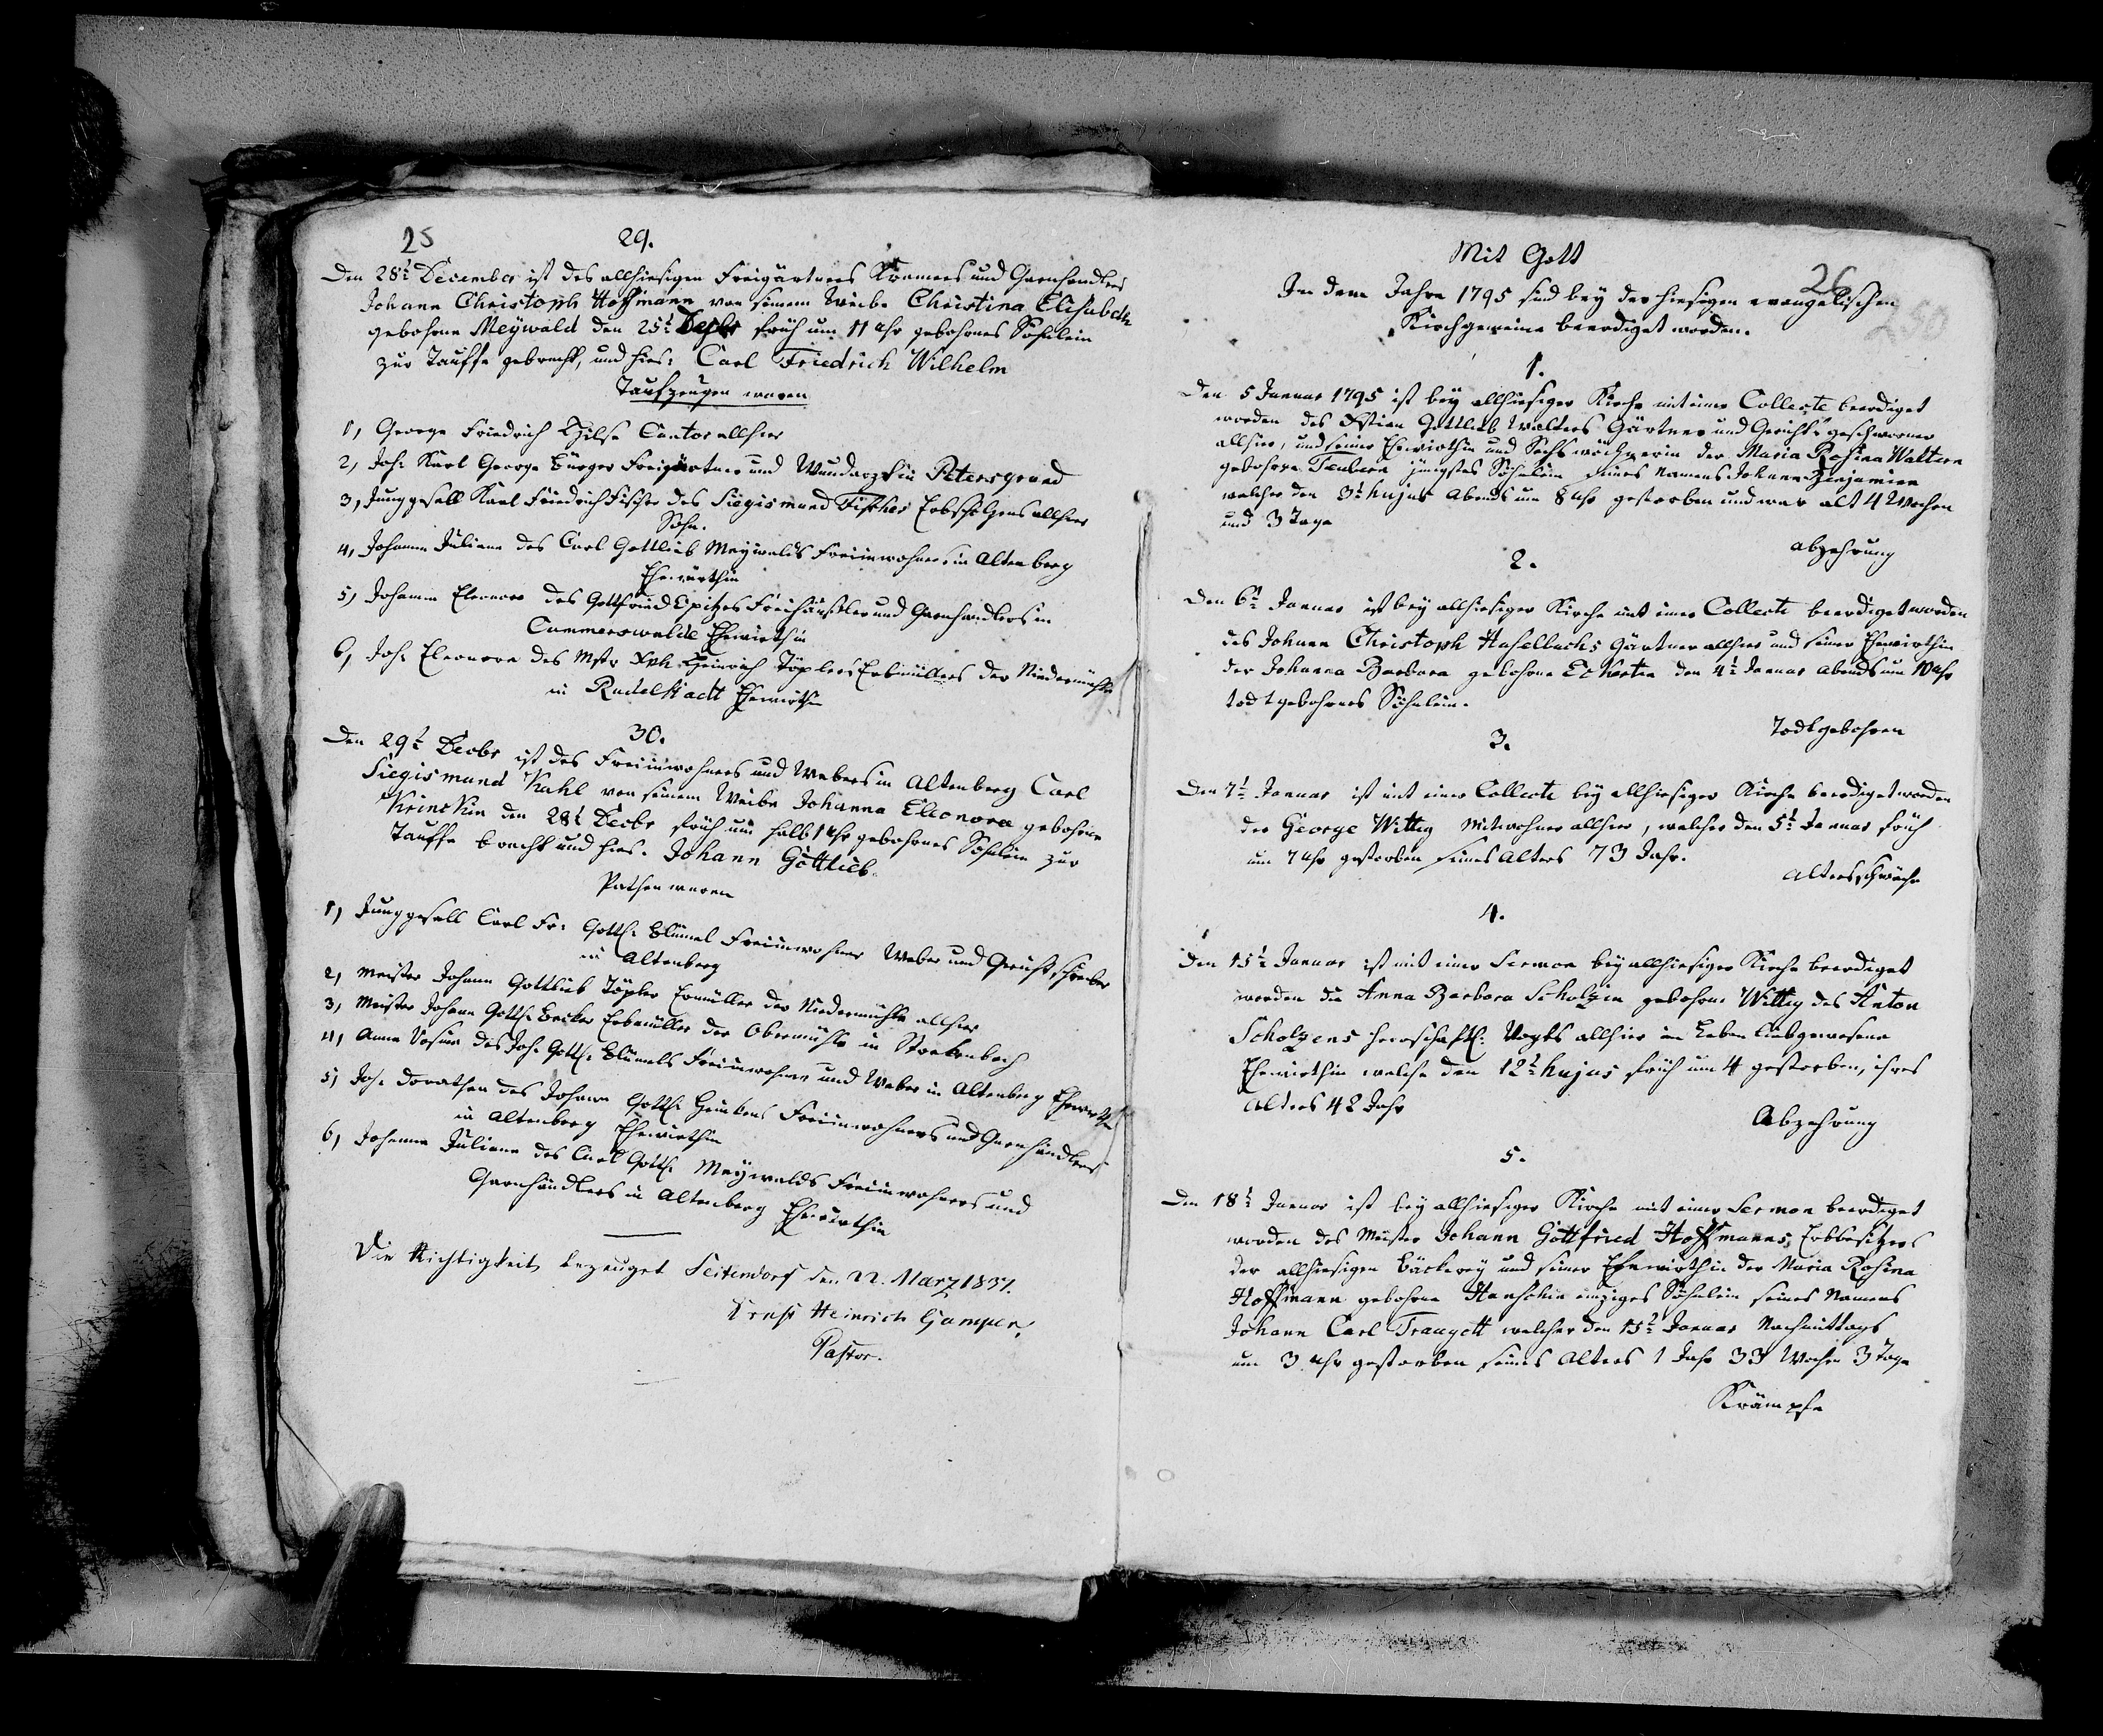 25
29.
Den 28t December ist des allhiesigen Freigärtners Kramers und Garnhändlers
Johann Christoph Hoffmann von seinem Weibe Christina Elisabeth
gebohrne Meywald den 25t Decbr früh um 11 Uhr gebohrnes Söhnlein
zur Tauffe gebracht, und hies: Carl Friedrich Wilhelm
Taufzeugen waren
1, George Friedrich Hilse Cantor allhier
2, Joh: Karl George Bürger Freigärtner und Wundarzt in Petersgrund
3, Junggesell Karl Friedrich Fischer des Siegismund Fischer Erbscholzens allhier
Sohn.
4, Johanne Juliane des Carl Gottlieb Meywalds Freiinwohners in Altenberg
Ehewirthin
5, Johanne Eleonore des Gottfried Opitzes Freihäusler und Garnhändlers in
Cammerswalde Ehewirthin
6, Joh: Eleonora des Mstr Heinrich Töplers Erbmüllers der Niedermühle
in Rudelstadt Ehewirthin
30.
Den 29t Decbr ist des Freiinwohners und Webers in Altenberg Carl
Siegismund Kahl von seinem Weibe Johanna Eleonora gebohrne
Heinckin den 28t Decbr früh um halb 1 Uhr gebohrnes Söhnlein zur
Tauffe bracht und hies. Johann Gottlieb.
Pathen waren
1, Junggesell Carl Fr: Gottl: Blümel Freiinwohner Weber und Gerichtsschreiber
in Altenberg
2, Meister Johann Gottlieb Töpler Ermüller der Niedermühle allhier
3, Meister Johann Gottl: Becker Erbmüller der Obermühle in Streckenbach
4, Anna Rosina des Joh: Gottl: Blümels Freiinwohner und Weber in Altenberg Ehewirthin
5, Joh: Dorothea des Johann Gottl: Heinkens Freiinwohners und Garnhändlers
in Altenberg Ehewirthin
6, Johanne Juliane des Carl Gottl: Meywalds Freiinwohners und
Garnhändlers in Altenberg Ehewirthin
Die Richtigkeit bezeuget Seitendorf den 22. März 1837.
Ernst Heinrich Gamper,
Pastor.
Mit Gott
26
250
In dem Jahre 1795 sind bey der hiesigen evangelischen
Kirchgemeine beerdiget worden.
1.
Den 5 Januar 1795 ist bey allhiesiger Kirche mit einer Collecte beerdiget
worden des Gottlieb Walters Gärtner und Gerichtsgeschworner
allhier, und seiner Ehewirthin und Sechswöchnerin der Maria Rosina Waltern
gebohrne jüngstes Söhnlein seines Namens Johann Benjamin
welcher den 3t hujus Abends um 8 Uhr gestorben und war alt 4 Wochen
und 3 Tage
Abzehrung
2.
Den 6t Januar ist bey allhiesiger Kirche mit einer Collecte beerdiget worden
des Johann Christoph Hasellachs Gärtner allhier und seiner Ehewirthin
der Johanna Barbara gebohrne Eckertin den 4t Januar Abends um 10 Uhr
todtgebohrnes Söhnlein.
Todtgebohren
3.
Den 7t Januar ist mit einer Collecte bey allhiesiger Kirche beerdiget worden
der George Wittig Mitwohner allhier, welcher den 5t Januar früh
um 7 Uhr gestorben seines Alters 73 Jahr.
Altersschwäche
4.
Den 15t Januar ist mit einer Sermon bey allhiesiger Kirche beerdiget
worden die Anna Barbara Scholzin gebohrne Wittig des Anton
Scholzens herrschaftl: Vogts allhier im Leben liebgewesene
Ehewirthin welche den 12t hujus früh um 4 gestorben, ihres
Alters 42 Jahr
Abzehrung
5.
Den 18t Januar ist bey allhiesiger Kirche mit einer Sermon beerdiget
worden des Meister Johann Gottfried Hoffmanns Erbbesitzers
der allhiesigen Bäckerey und seiner Ehewirthin der Maria Rosina
Hoffmann gebohrne Hanschin einziges Söhnlein seines Namens
Johann Carl Traugott welcher den 15t Januar Nachmittags
um 3 Uhr gestorben seines Alters 1 Jahr 33 Wochen 3 Tage
Krämpfe